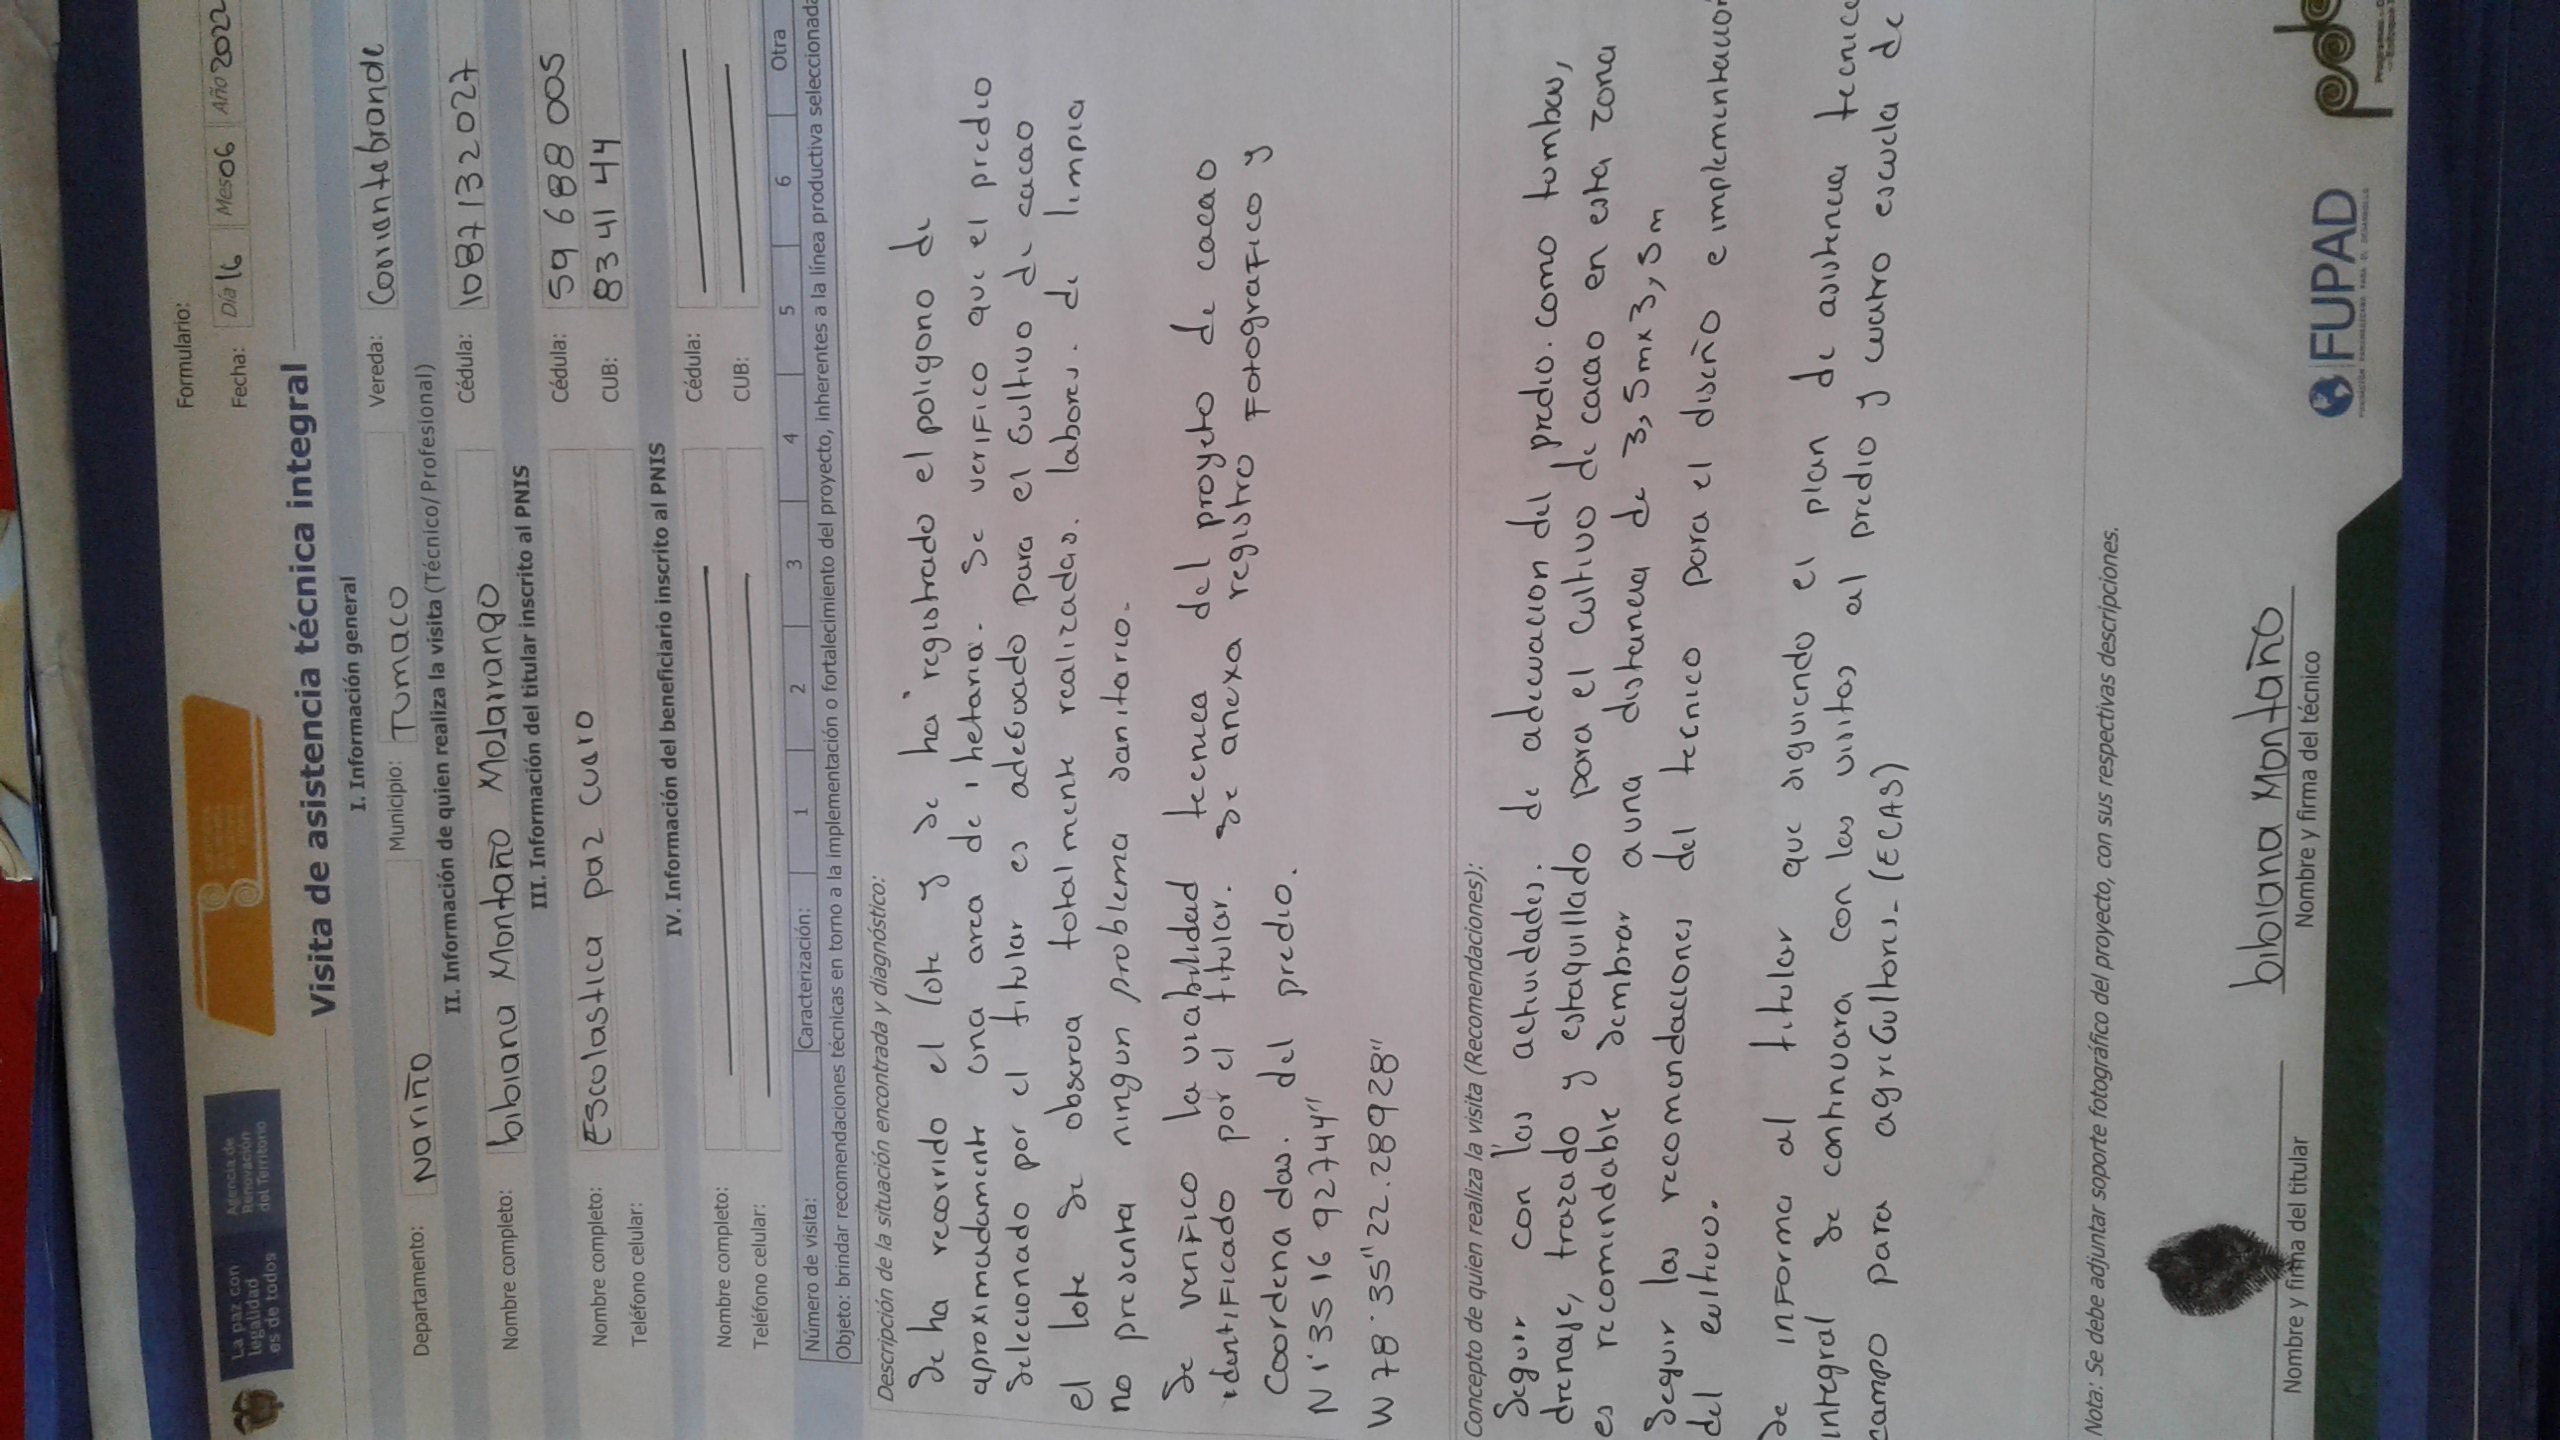 La paz con
legalidad
es de todos
Agencia de
Renovación
del Territorio
Formulario:
Fecha: Día 16 Mes 06 Año 2022
Visita de asistencia técnica integral
I. Información general
Departamento: Nariño Municipio: Tumaco Vereda: Corriantebrande
II. Información de quien realiza la visita (Técnico/ Profesional)
Nombre completo: bibiana Montaño Molarrango Cédula: 1087132027
III. Información del titular inscrito al PNIS
Nombre completo: Escolastica paz Cuaro Cédula: 59 688 005
Teléfono celular: CUB: 83 41 44
IV. Información del beneficiario inscrito al PNIS
Nombre completo: Cédula:
Teléfono celular: CUB:
Número de visita: Caracterización: 1 2 3 4 5 6 Otra
Objeto: brindar recomendaciones técnicas en torno a la implementación o fortalecimiento del proyecto, inherentes a la línea productiva seleccionada
Descripción de la situación encontrada y diagnóstico:
Se ha recorrido el lote y se ha registrado el poligono de
aproximadamente una area de 1 hetaria. Se verifico que el predio
Selecionado por el titular es adecuado para el Cultivo de cacao
el lote se observa totalmente realizadas. labores. de limpia
no presenta ningun problema sanitario.
Se verifico la viabilidad tecnica del proyeto de cacao
identificado por el titular. Se anexa registro Fotografico y
Coordena das. del predio.
N 1°35 16 92744"
W 78°35"22.28928"
Concepto de quien realiza la visita (Recomendaciones):
Seguir con las actividades. de adecuacion del predio. como tumbas,
drenaje, trazado y estaquillado para el cultivo de cacao en esta zona
es recomindable sembrar auna distancia de 3,5mx3,5m
Seguir las recomendaciones del tecnico para el diseño e implementacion
del cultivo.
Se informa al titular que siguiendo el plan de asistencia tecnica
integral se continuara con las visitas al predio y cuatro escuela de
campo para agricultores. (ECAS)
Nota: Se debe adjuntar soporte fotográfico del proyecto, con sus respectivas descripciones.
bibiana Montaño
Nombre y firma del titular Nombre y firma del técnico
FUPAD